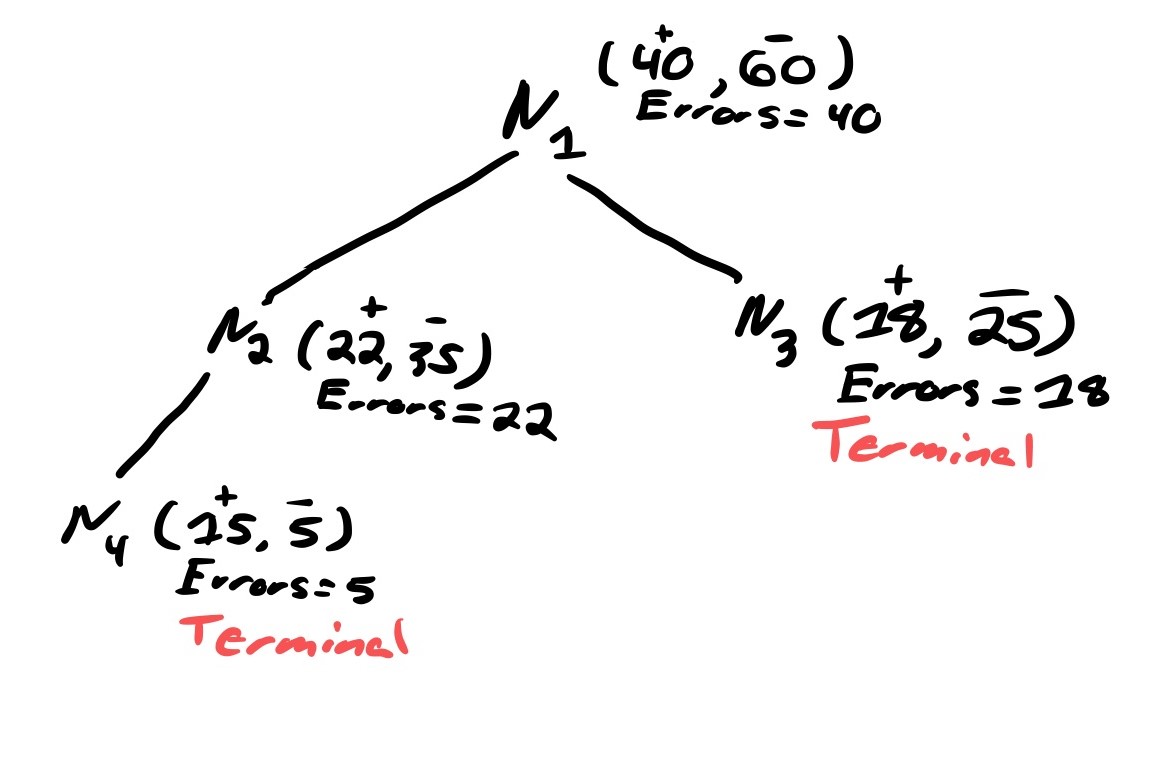 (40, 60)
+ −
Errors = 40
N1
N2 (22, 35)
+ −
Errors = 22
N3 (18, 25)
+ −
Errors = 18
Terminal
N4 (15, 5)
+ −
Errors = 5
Terminal